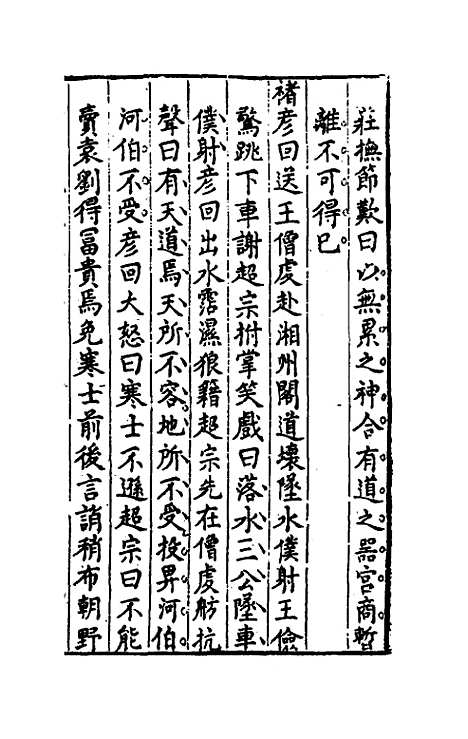 莊撫節歎曰以無累之神合有道之器宮商暫
離不可得已
褚彥回送王僧虔赴湘州閣道壞墜水僕射王儉
驚跳下車謝超宗拊掌笑戲曰落水三公墜車
僕射彥回出水霑濕狼籍超宗先在僧虔舫抗
聲曰有天道焉天所不容地所不受投畀河伯
河伯不受彥回大怒曰寒士不遜超宗曰不能
賣袁劉得冨貴焉免寒士前後言誚稍布朝野